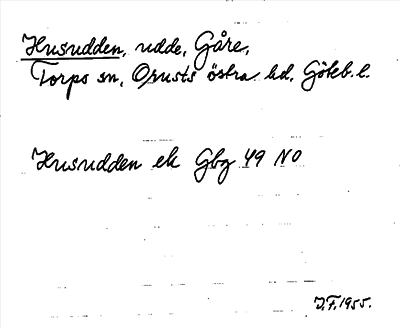 Husudden, udde, Gåre,
Torps sn, Orusts östra hd, Göteb. l.
Husudden ek Gbg 49 NO
J.F. 1955.